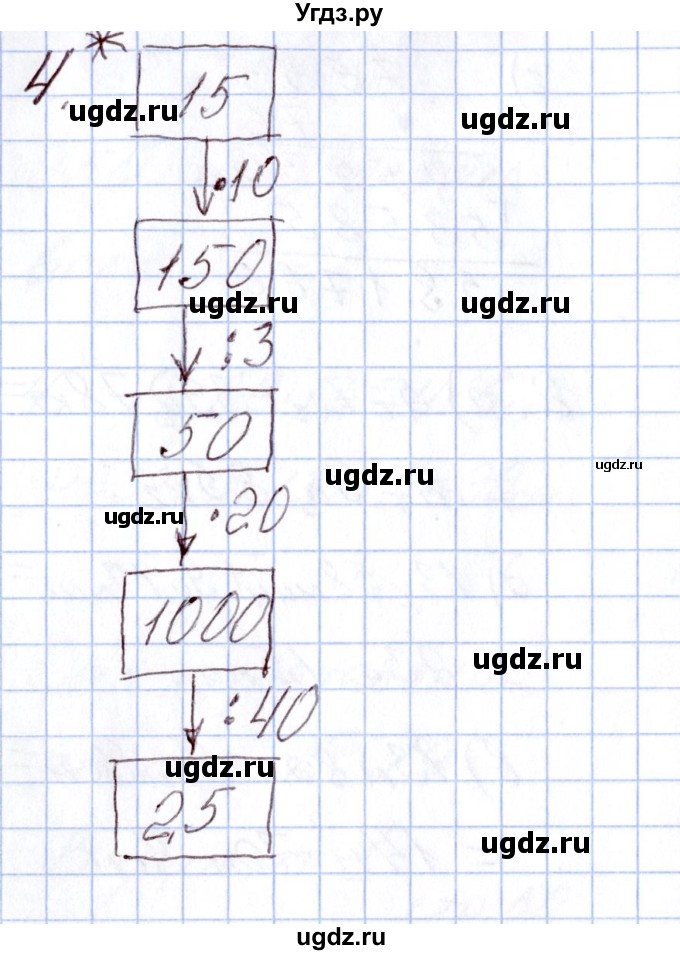 Угдз.ру
4*
15
ugdz.ru
ugdz.ru
·10
150
ugdz.ru
ugdz.ru
:3
50
ugdz.ru
ugdz.ru
ugdz.ru
·20
1000
ugdz.ru
:40
ugdz.ru
25
ugdz.ru
ugdz.ru